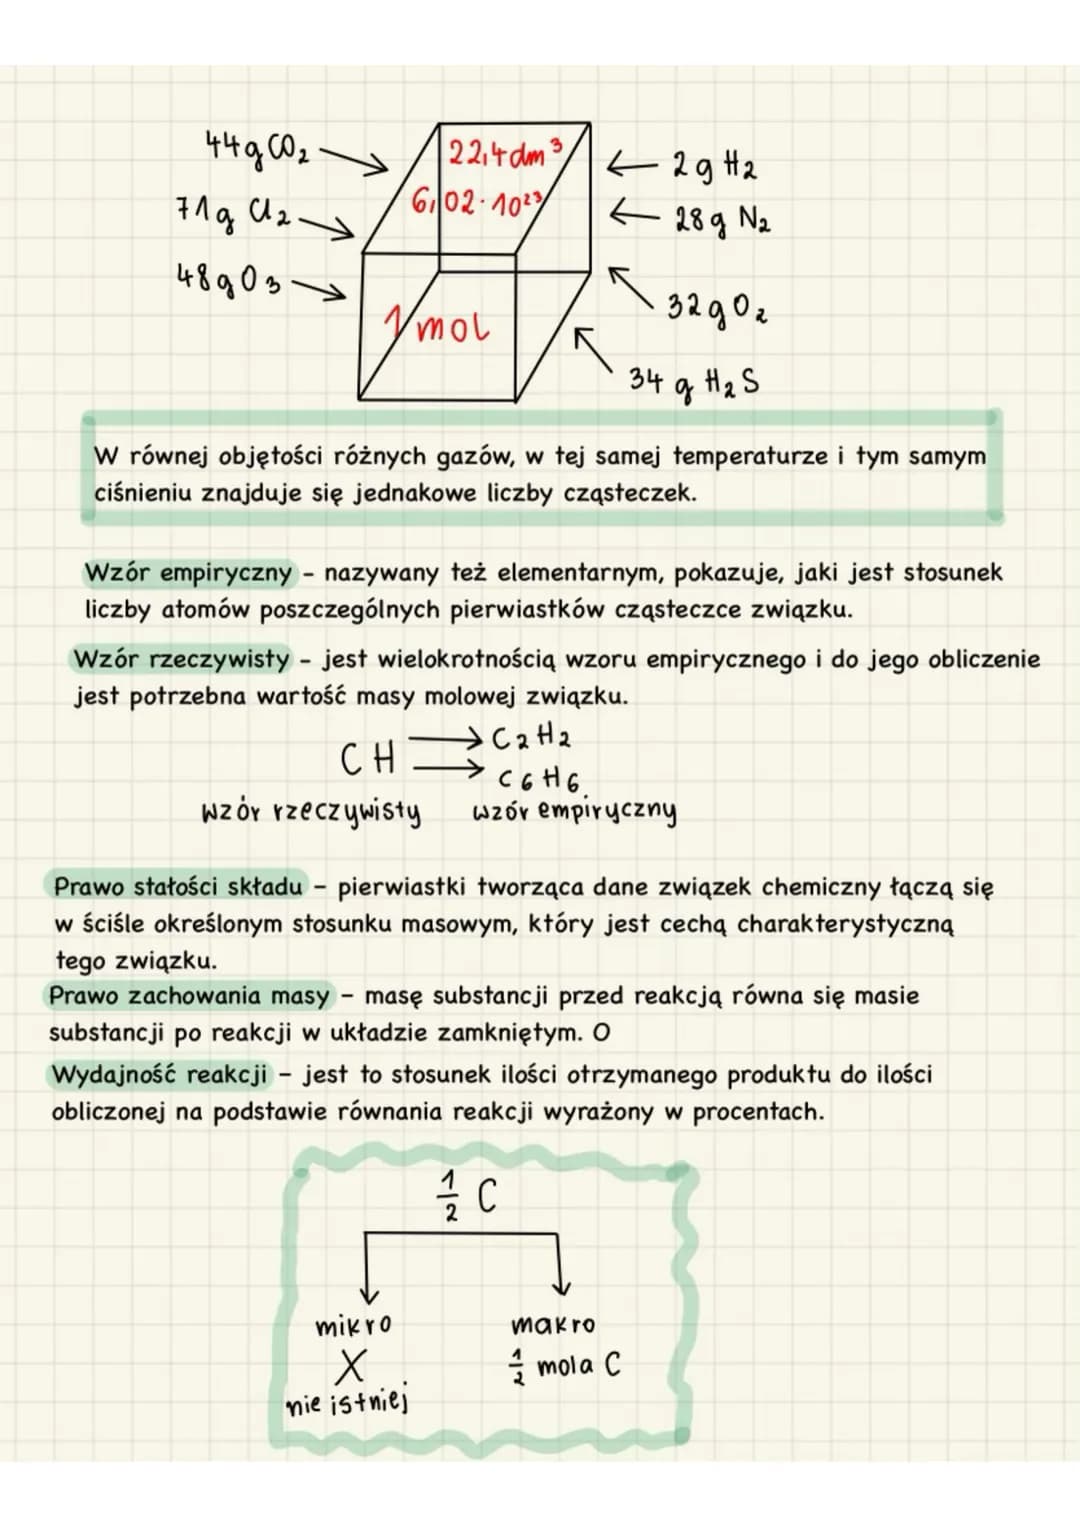 44g CO₂
22,4 dm³
2g H₂
6,02·10²³
71g Cl₂
28g N₂
48g O₃
1 mol
32g O₂
34 g H₂S
W równej objętości różnych gazów, w tej samej temperaturze i tym samym
ciśnieniu znajduje się jednakowe liczby cząsteczek.
Wzór empiryczny - nazywany też elementarnym, pokazuje, jaki jest stosunek
liczby atomów poszczególnych pierwiastków cząsteczce związku.
Wzór rzeczywisty - jest wielokrotnością wzoru empirycznego i do jego obliczenie
jest potrzebna wartość masy molowej związku.
C₂H₂
CH
C₆H₆
wzór rzeczywisty wzór empiryczny
Prawo stałości składu - pierwiastki tworząca dane związek chemiczny łączą się
w ściśle określonym stosunku masowym, który jest cechą charakterystyczną
tego związku.
Prawo zachowania masy - masę substancji przed reakcją równa się masie
substancji po reakcji w układzie zamkniętym. O
Wydajność reakcji - jest to stosunek ilości otrzymanego produktu do ilości
obliczonej na podstawie równania reakcji wyrażony w procentach.
½ C
mikro makro
X ½ mola C
nie istniej